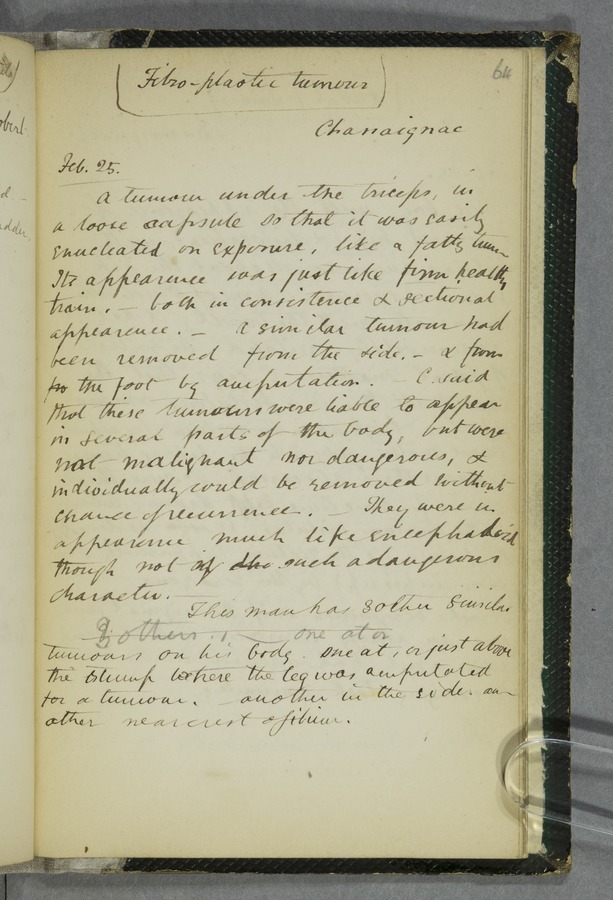 64
Fibro-plastic tumour
Chassaignac
Feb. 25.
A tumour under the triceps, in
a loose capsule so that it was easily
enucleated on exposure, like a fatty tumr
Its appearance was just like firm healthy
brain. — both in consistence & sectional
appearance. — A similar tumour had
been removed from the side. — & from
the foot by amputation. — C. said
that these tumours were liable to appear
in several parts of the body, but were
not malignant nor dangerous, &
individually could be removed without
chance of recurrence. — They were in
appearance much like encephaloid
though not of the such a dangerous
character.
This man has 3 other similar
3 others. one at or
tumours on his body. one at, or just above
the stump where the leg was amputated
for a tumour. — another in the side. an-
other near crest of ilium.